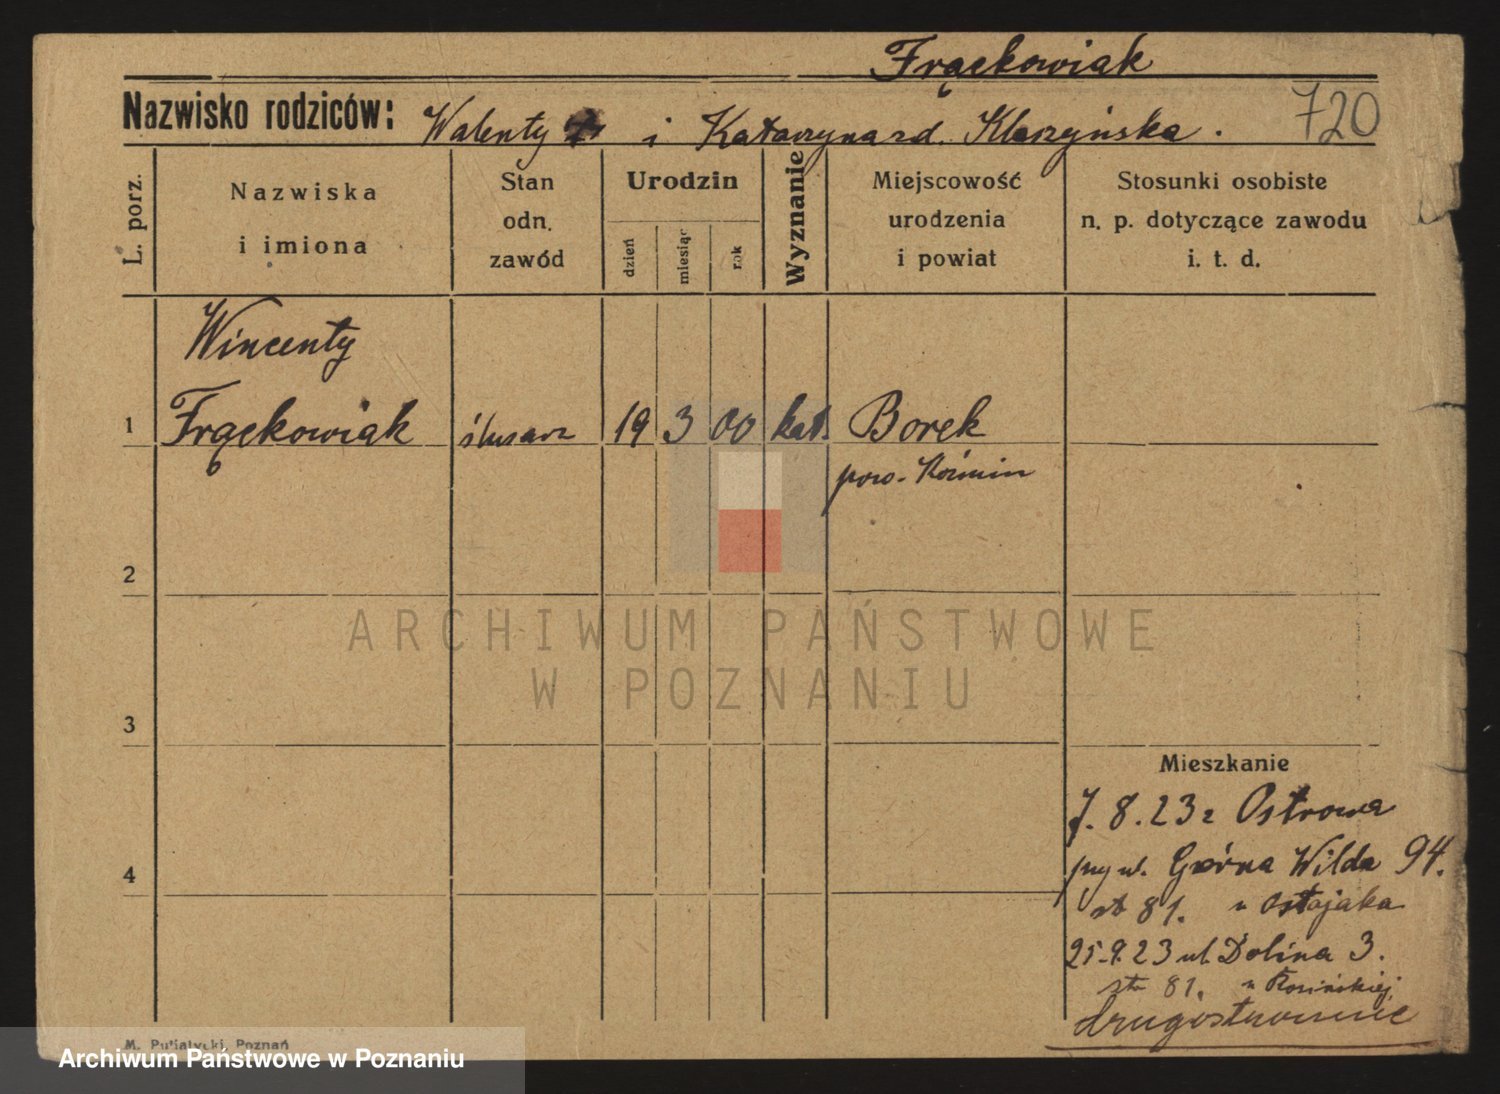 Frąckowiak
Nazwisko rodziców: Walenty i Katarzyna zd. Klarzyńska.
720
L. porz.
Nazwiska
i imiona
Stan
odn.
zawód
Urodzin
dzień
miesiąc
rok
Wyznanie
Miejscowość
urodzenia
i powiat
Stosunki osobiste
n. p. dotyczące zawodu
i. t. d.
Wincenty
1 Frąckowiak ślusarz 19 3 00 kat. Borek
pow. Koźmin
2
ARCHIWUM PAŃSTWOWE
W POZNANIU
3
Mieszkanie
7.8.23 z Ostrowa
4
przy ul. Górna Wilda 94.
st 81. u Ostojaka
25.9.23 ul. Dolina 3.
str 81. u Rosińskiej,
drugostronnie
M. Putiatycki, Poznań
Archiwum Państwowe w Poznaniu